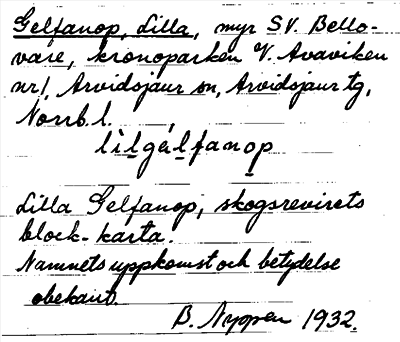 Gelfanop, Lilla, myr SV. Bello-
vare, kronoparken V. Avaviken
nr 1, Arvidsjaur sn, Arvidsjaur tg,
Norrb. l.
lìlgélfanop
Lilla Gelfanop, skogsrevirets
block-karta.
Namnets uppkomst och betydelse
obekant.
B. Nyppen 1932.